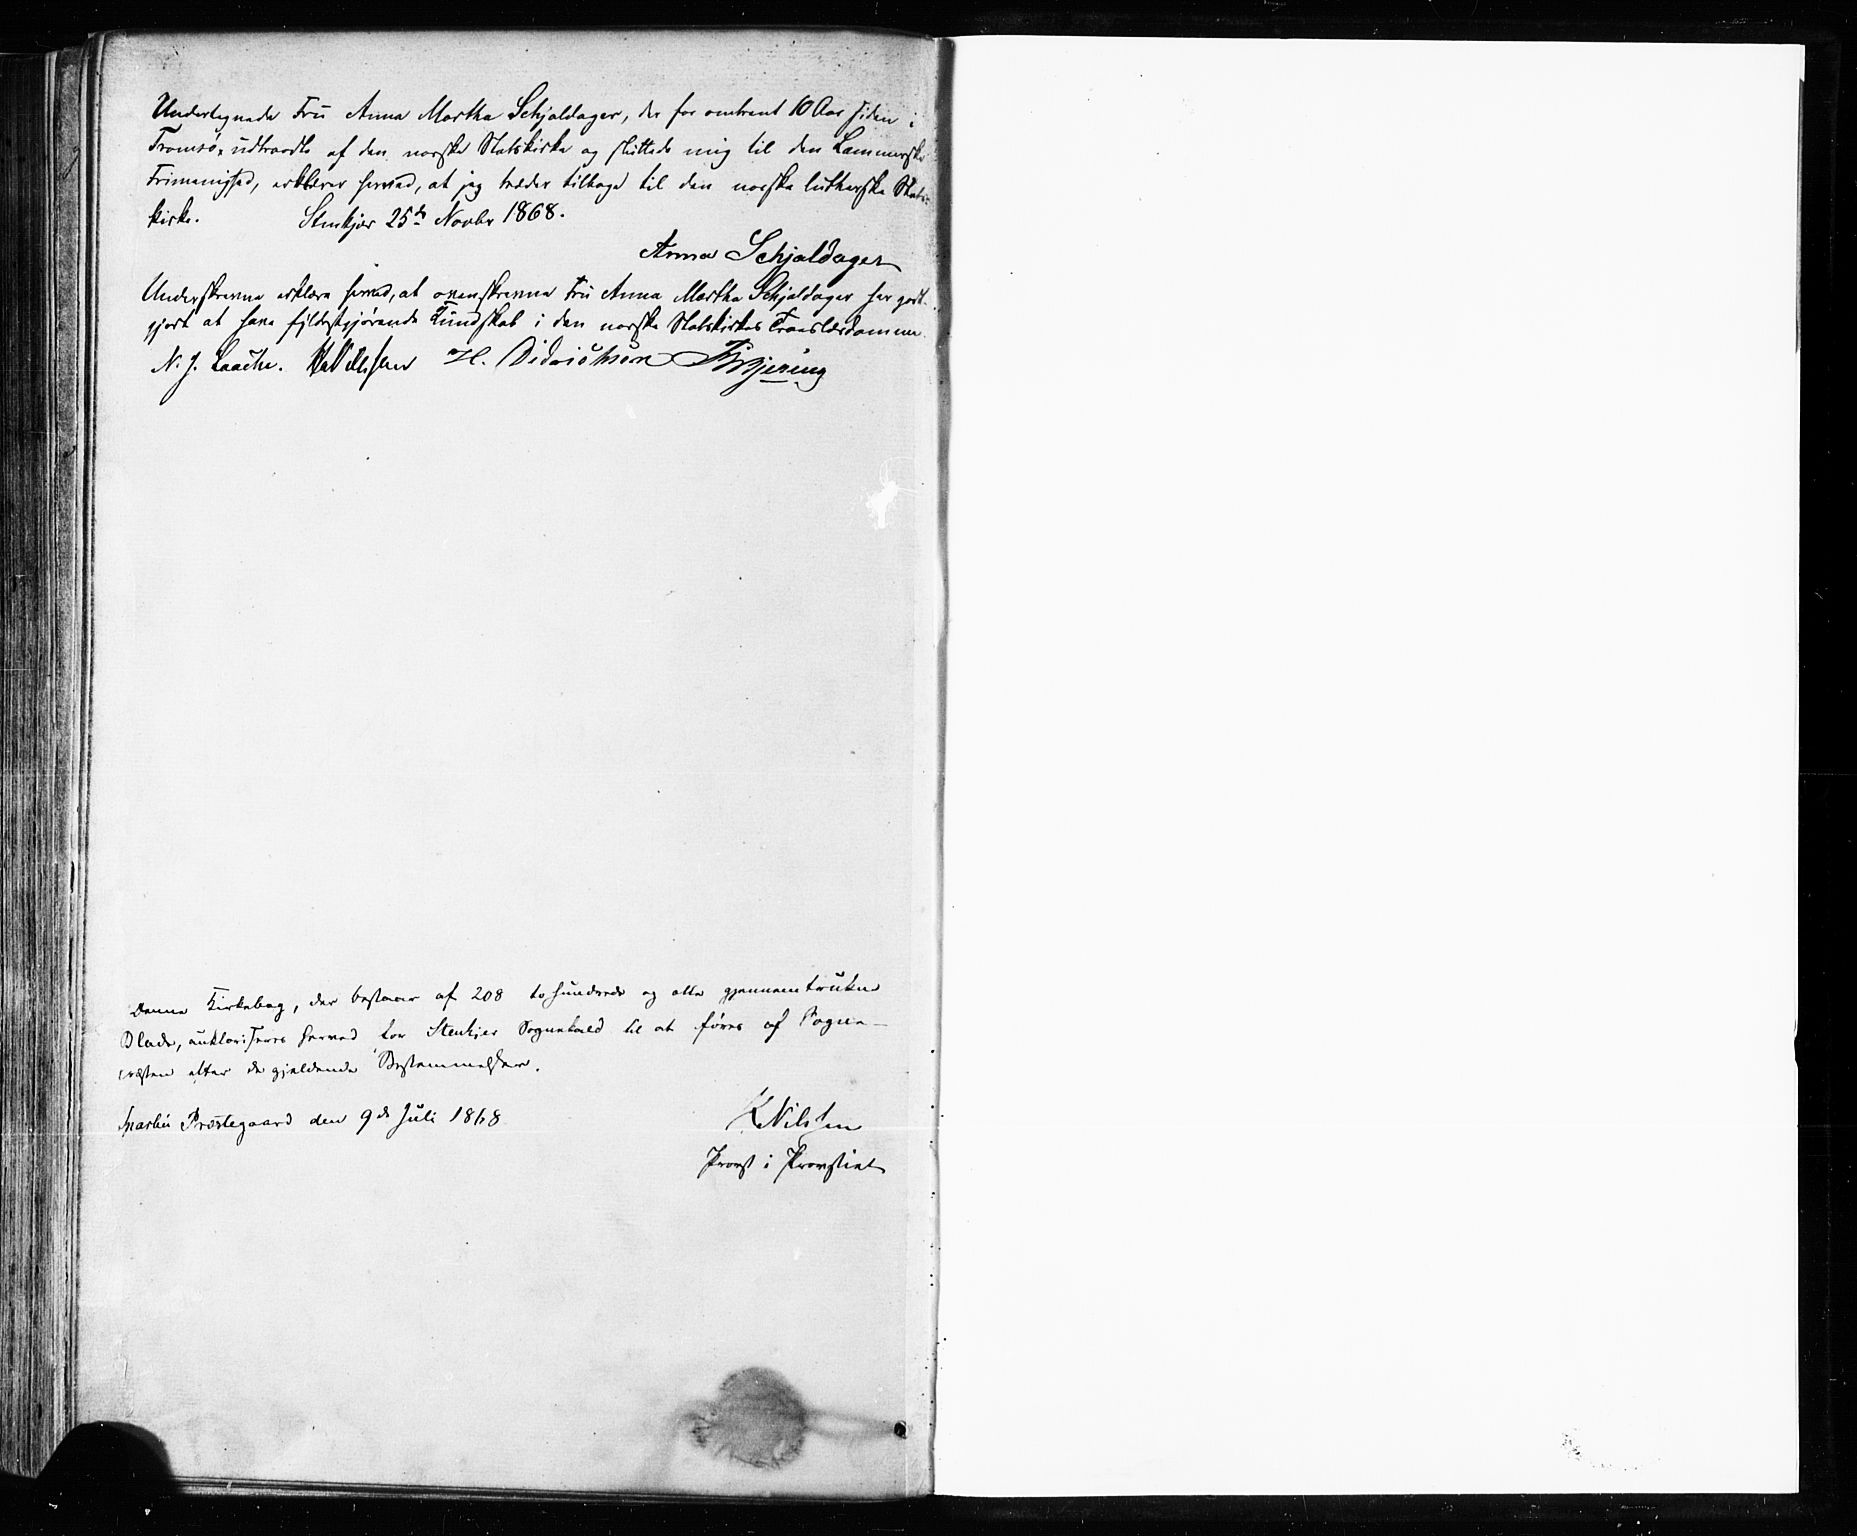 Undertegnede Fru Anna Martha Schjeldager, der for omtrent 10 Aar siden i
Tromsø udtraadte af den norske Statskirke og sluttede mig til den Lammerske
Frimenighed, erklærer herved, at jeg træder tilbage til den norske lutherske Stats-
kirke. Stenkjær 25de Novbr 1868.
Anna Schjeldager
Underskrevne erklære herved, at ovenskrevne Fru Anna Martha Schjeldager har godt-
gjort at have fyldestgjørende Kundskab i den norske Statskirkes Troeslærdomme.
N. J. Laache. H. Didrichsen
Denne Kirkebog, der bestaaer af 208 to hundrede og otte gjennemtrukne
Blade, auktoriseres herved for Stenkjer Sognekald til at føres af Sogne-
præsten efter de gjeldende Bestemmelser.
Sparbu Præstegaard den 9de Juli 1868
K Nilssen
Provst i Provstiet